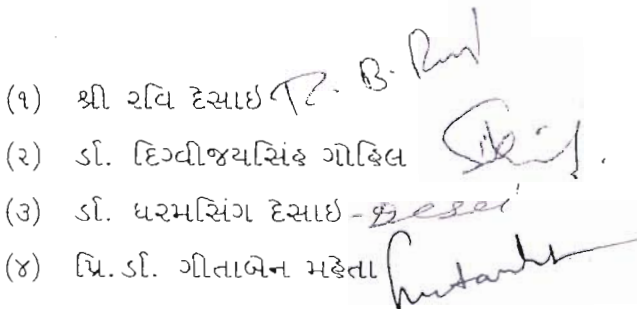 (૧) શ્રી રવિ દેસાઇ
(૨) ર્ડા. દિગ્વીજયસિંહ ગોહિલ
(૩) ર્ડા. ધરમસિંગ દેસાઇ -
(૪) પ્રિ.ર્ડા. ગીતાબેન મહેતા